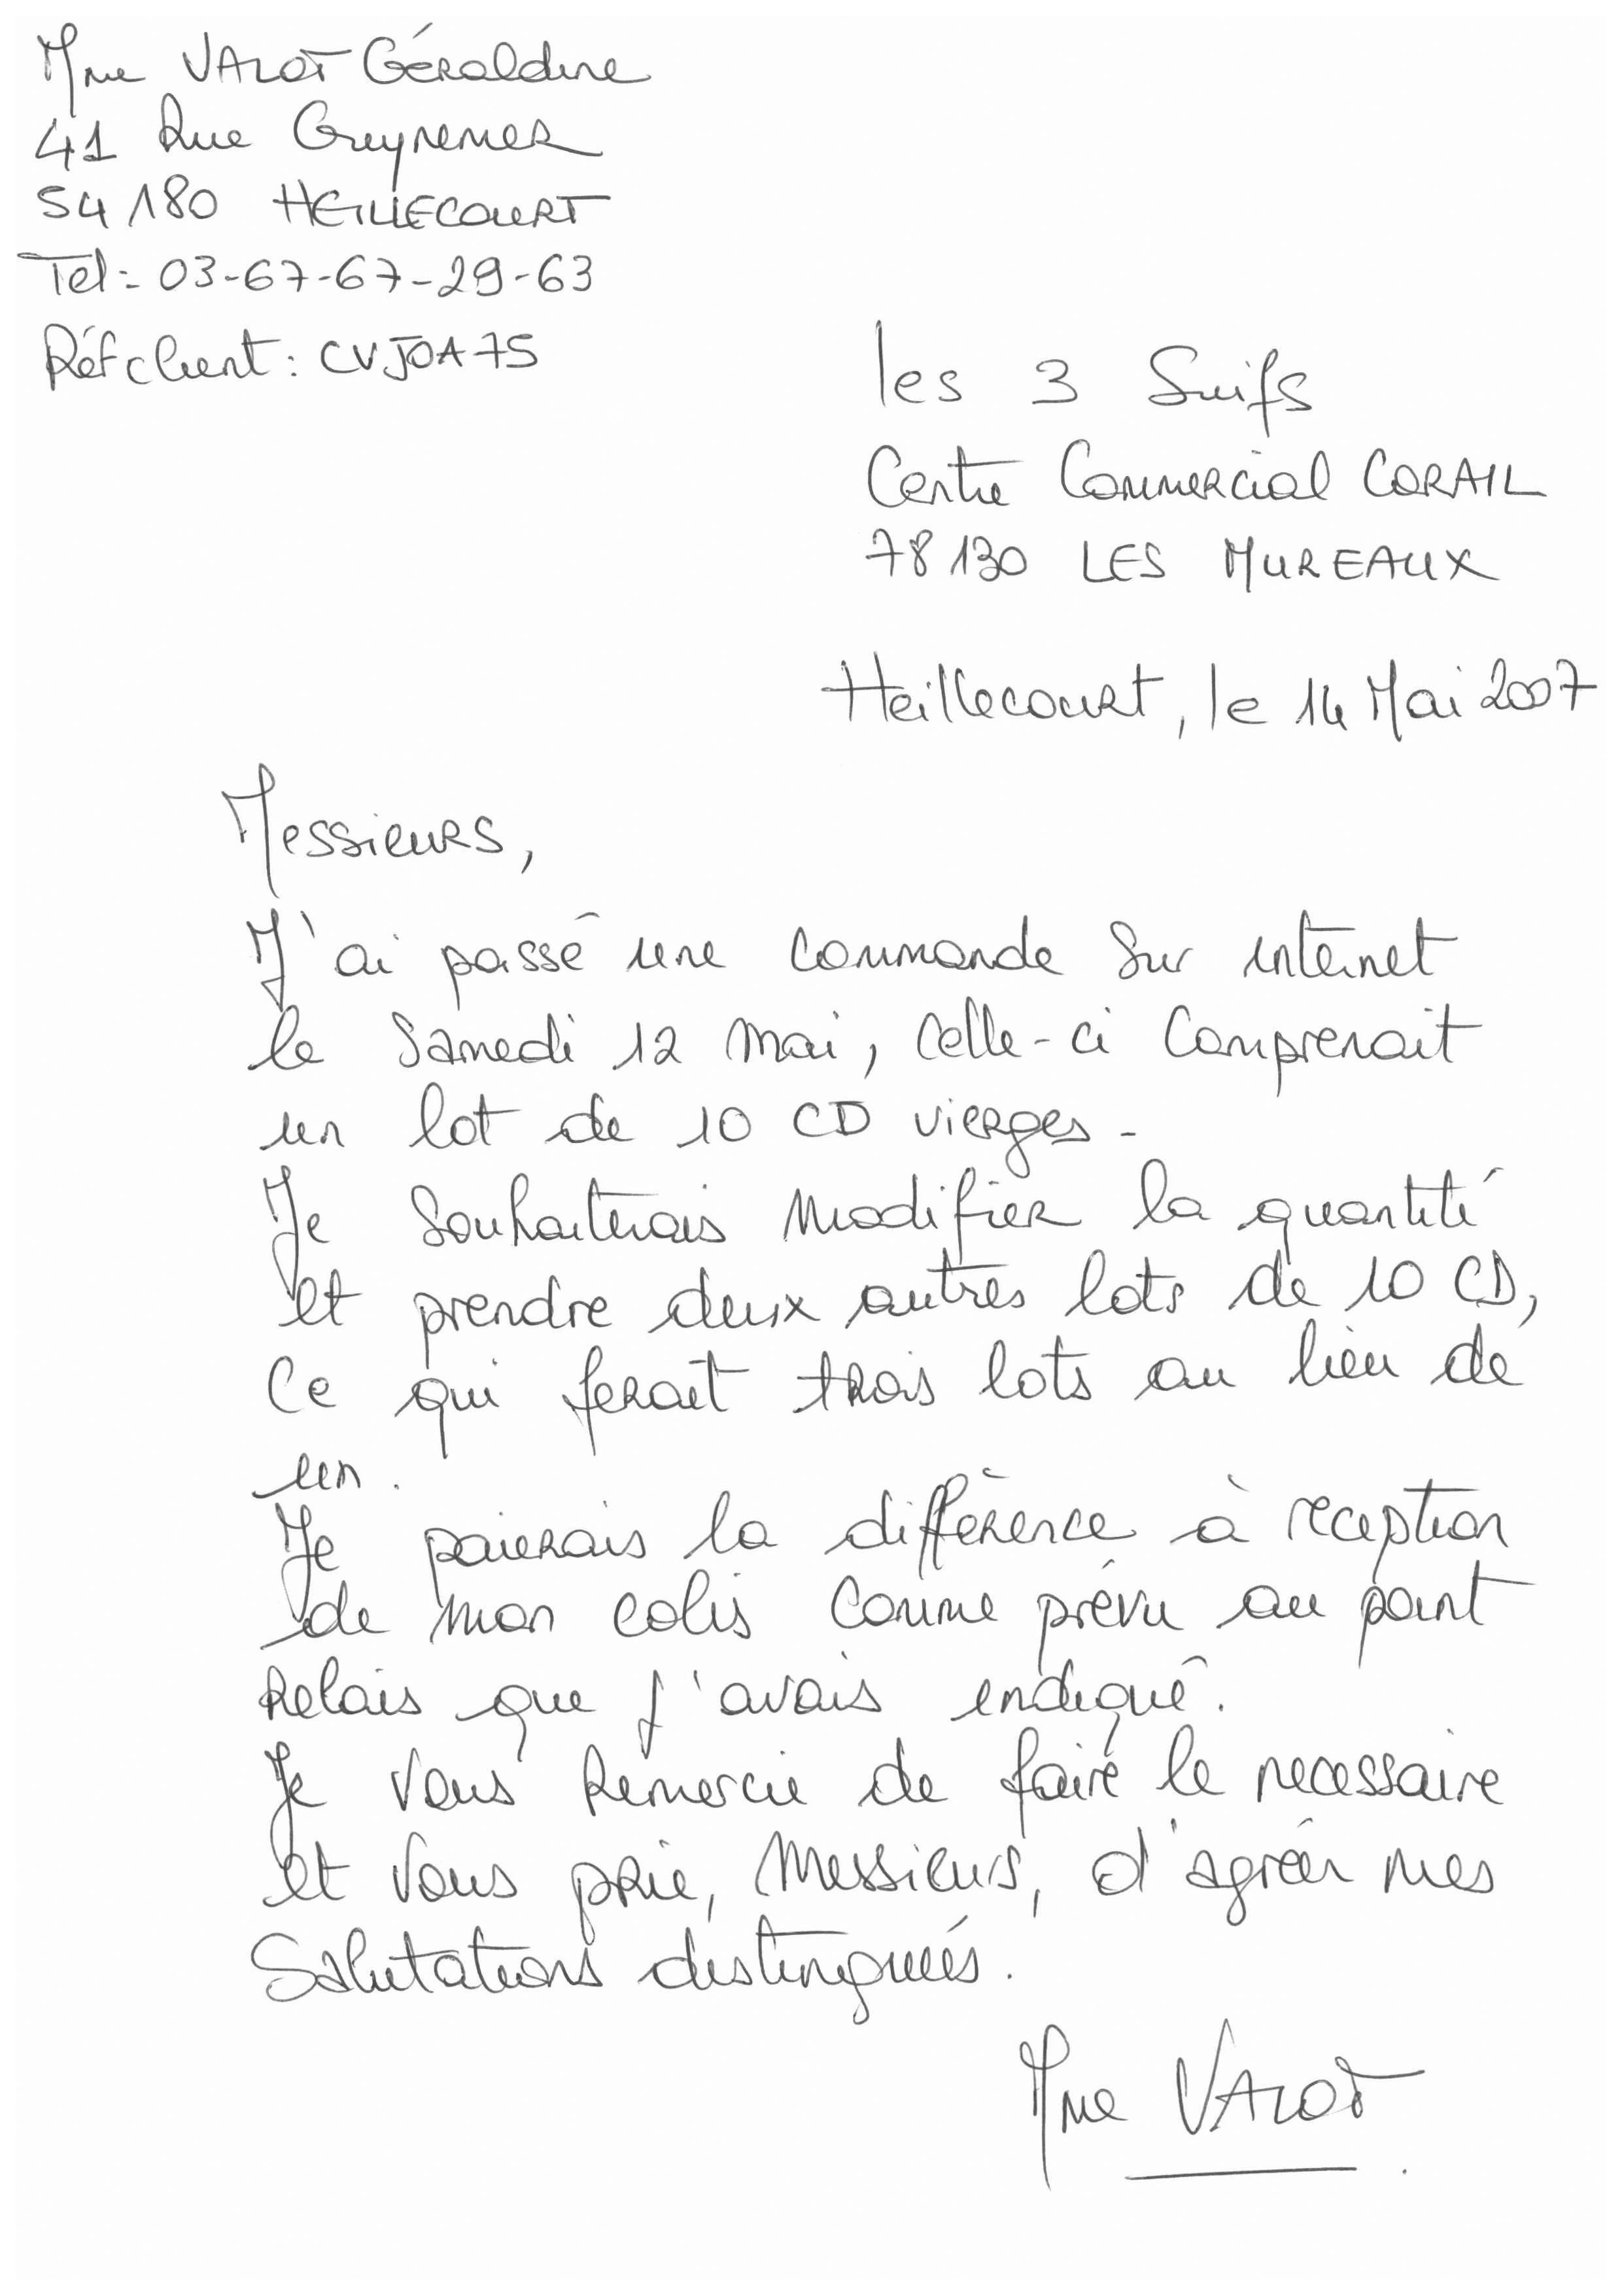 Mme VALOT Géraldine
41 Rue Guynemer
54180 HEILLECOURT
Tel : 03-67-67-29-63
Réf client : CVJOA75
les 3 Suifs
Centre Commercial CORAIL
78130 LES MUREAUX
Heillecourt, le 14 Mai 2007
Messieurs,
J'ai passé une commande sur internet
le Samedi 12 mai, celle-ci comprenait
un lot de 10 CD vierges.
Je souhaiterais modifier la quantité
et prendre deux autres lots de 10 CD,
ce qui ferait trois lots au lieu de
un.
Je paierais la différence à reception
de mon colis comme prévu au point
relais que j'avais indiqué.
Je vous remercie de faire le necessaire
et vous prie, Messieurs, d'agréer mes
Salutations distinguées.
Mme VALOT